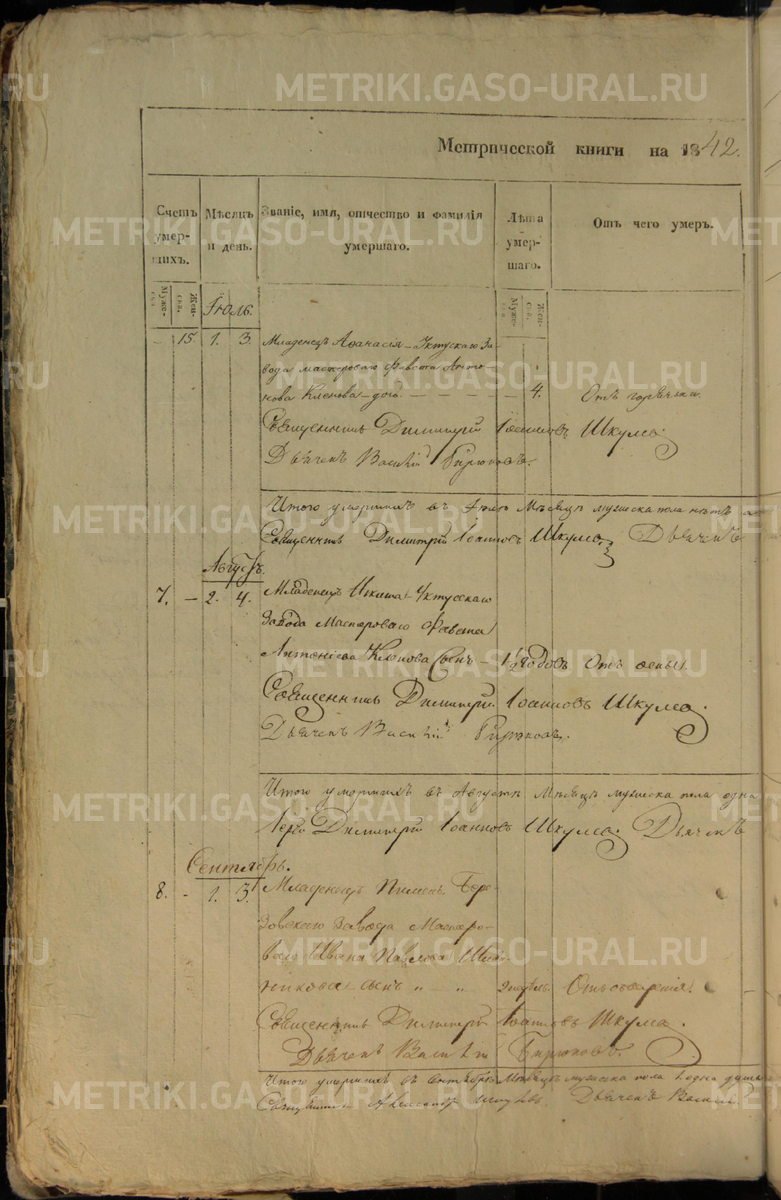 METRIKI.GASO-URAL.RU
Метрической книги на 1842.
Счетъ умер-шихъ.
Мѣсяцъ и день.
Званіе, имя, отчество и фамилія умершаго.
Лѣта умер-шаго.
Отъ чего умеръ.
Муже-ска. Жен-ска.
Муже-ска. Жен-ска.
Іюль.
– 15. 1. 3. Младенецъ Аѳанасія – Уктускаго За-
вода мастероваго Фавста Анто-
нова Кленова – дочь – – – – – 4. Отъ горячьки
Священникъ Димитрій Іоанновъ Шкулма.
Дьячекъ Василій Бирюковъ.
Итого умершихъ въ Іюлѣ Мѣсяцѣ мужеска пола нѣтъ а
Священникъ Димитрій Іоанновъ Шкулма Дьячекъ
Августъ.
7. – 2. 4. Младенецъ Никита – Уктусскаго
Завода Мастероваго Фавста
Антоніева Кленова Сынъ – 1½ годовъ Отъ оспы
Священникъ Димитрій Іоанновъ Шкулма.
Дьячекъ Василій Бирюковъ.
Итого умершихъ въ Августѣ Мѣсяцѣ мужеска пола одна
Іерей Димитрій Іоанновъ Шкулма. Дьячекъ
Сентябрь.
8. – 1. 3. Младенецъ Пименъ Бере-
зовскаго Завода Мастеро-
ваго Ивана Павлова
никова – сынъ „ – „ недѣль.
Священникъ Димитрій Іоанновъ Шкулма.
Дьячекъ Василій Бирюковъ.
Итого умершихъ въ Сентябрѣ Мѣсяцѣ мужеска пола одна душа
Александръ Дьячекъ Василій